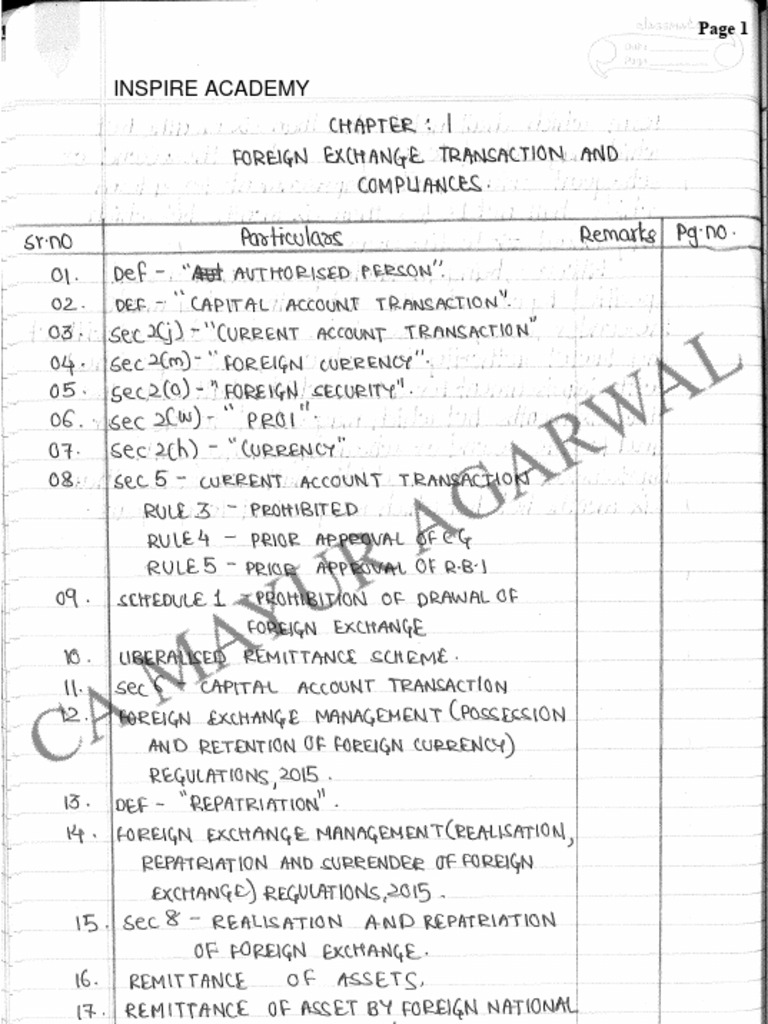 Page 1
INSPIRE ACADEMY
CHAPTER : 1
FOREIGN EXCHANGE TRANSACTION AND
COMPLIANCES.
Sr.no Particulars Remarks Pg.no.
01. Def - "AUTHORISED PERSON".
02. DEF - "CAPITAL ACCOUNT TRANSACTION".
03. Sec 2(j) - "CURRENT ACCOUNT TRANSACTION"
04. Sec 2(m) - "FOREIGN CURRENCY".
05. Sec 2(o) - "FOREIGN SECURITY".
06. Sec 2(w) - "PROI".
07. Sec 2(h) - "CURRENCY"
08. Sec 5 - CURRENT ACCOUNT TRANSACTION
RULE 3 - PROHIBITED
RULE 4 - PRIOR APPROVAL OF C G
RULE 5 - PRIOR APPROVAL OF R.B.I
09. SCHEDULE 1 - PROHIBITION OF DRAWAL OF
FOREIGN EXCHANGE
10. LIBERALISED REMITTANCE SCHEME.
11. Sec 6 - CAPITAL ACCOUNT TRANSACTION
12. FOREIGN EXCHANGE MANAGEMENT (POSSESSION
AND RETENTION OF FOREIGN CURRENCY)
REGULATIONS, 2015.
13. DEF - "REPATRIATION".
14. FOREIGN EXCHANGE MANAGEMENT (REALISATION,
REPATRIATION AND SURRENDER OF FOREIGN
EXCHANGE) REGULATIONS, 2015.
15. Sec 8 - REALISATION AND REPATRIATION
OF FOREIGN EXCHANGE.
16. REMITTANCE OF ASSETS.
17. REMITTANCE OF ASSET BY FOREIGN NATIONAL
CA MAYUR AGARWAL